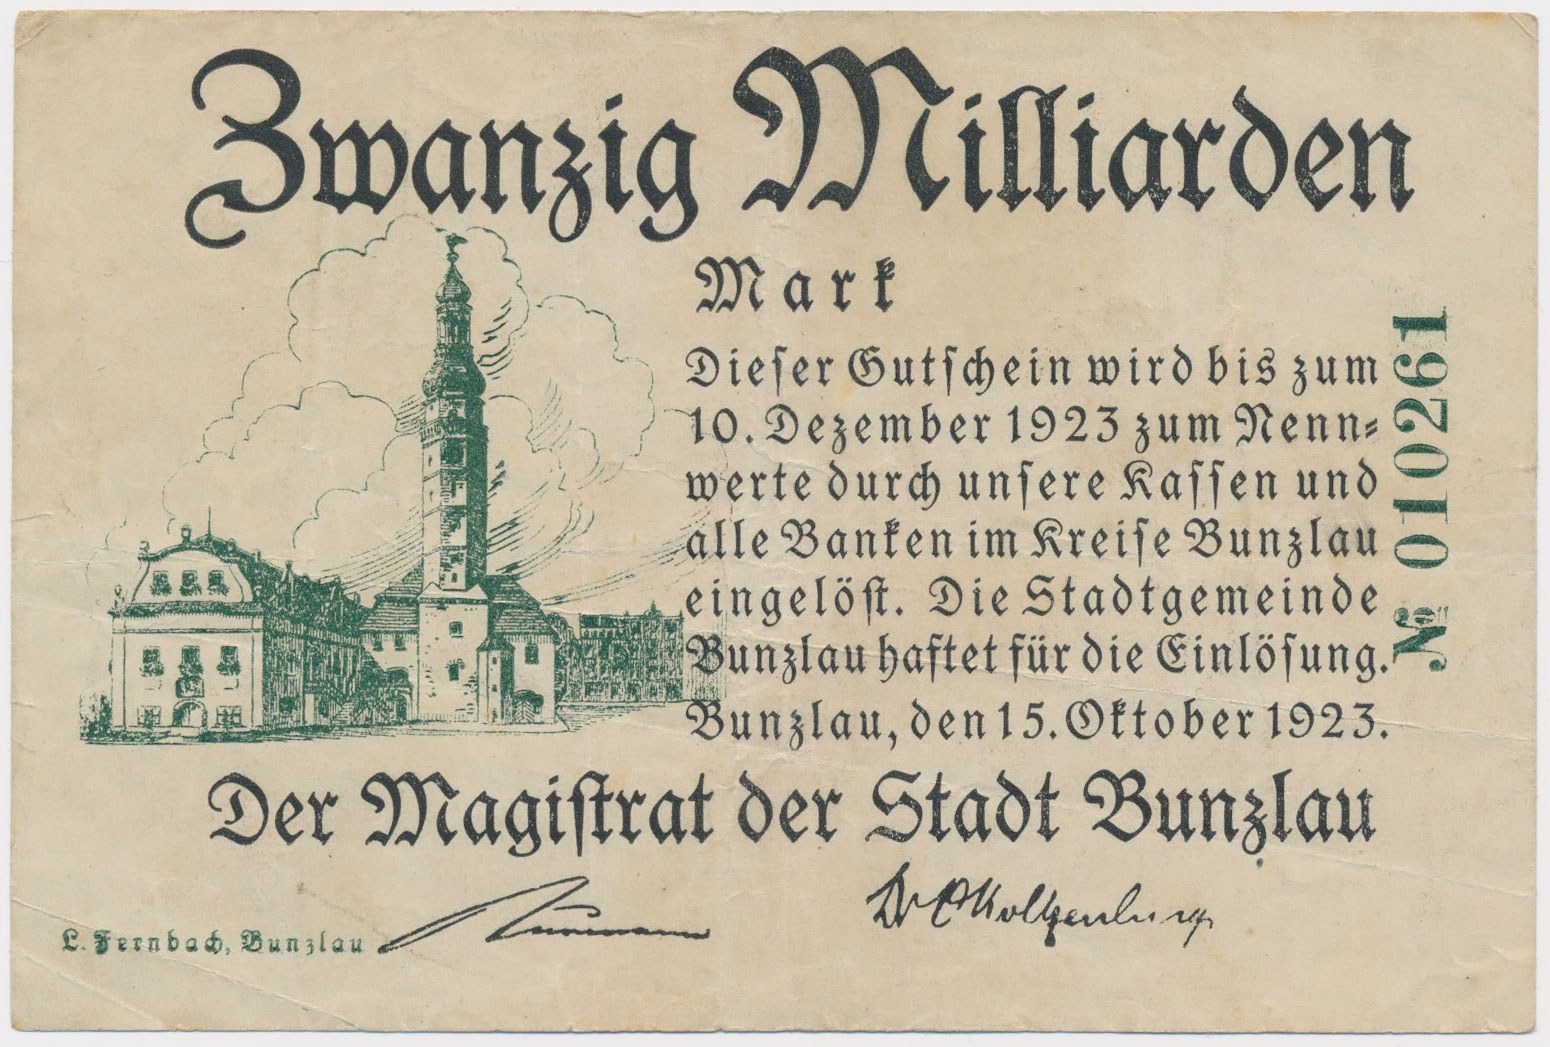 Zwanzig Milliarden
Mark
Dieser Gutschein wird bis zum
10. Dezember 1923 zum Nenn=
werte durch unsere Kassen und
alle Banken im Kreise Bunzlau
eingelöst. Die Stadtgemeinde
Bunzlau haftet für die Einlösung.
Bunzlau, den 15. Oktober 1923.
№ 010261
Der Magistrat der Stadt Bunzlau
Dr
L. Fernbach, Bunzlau